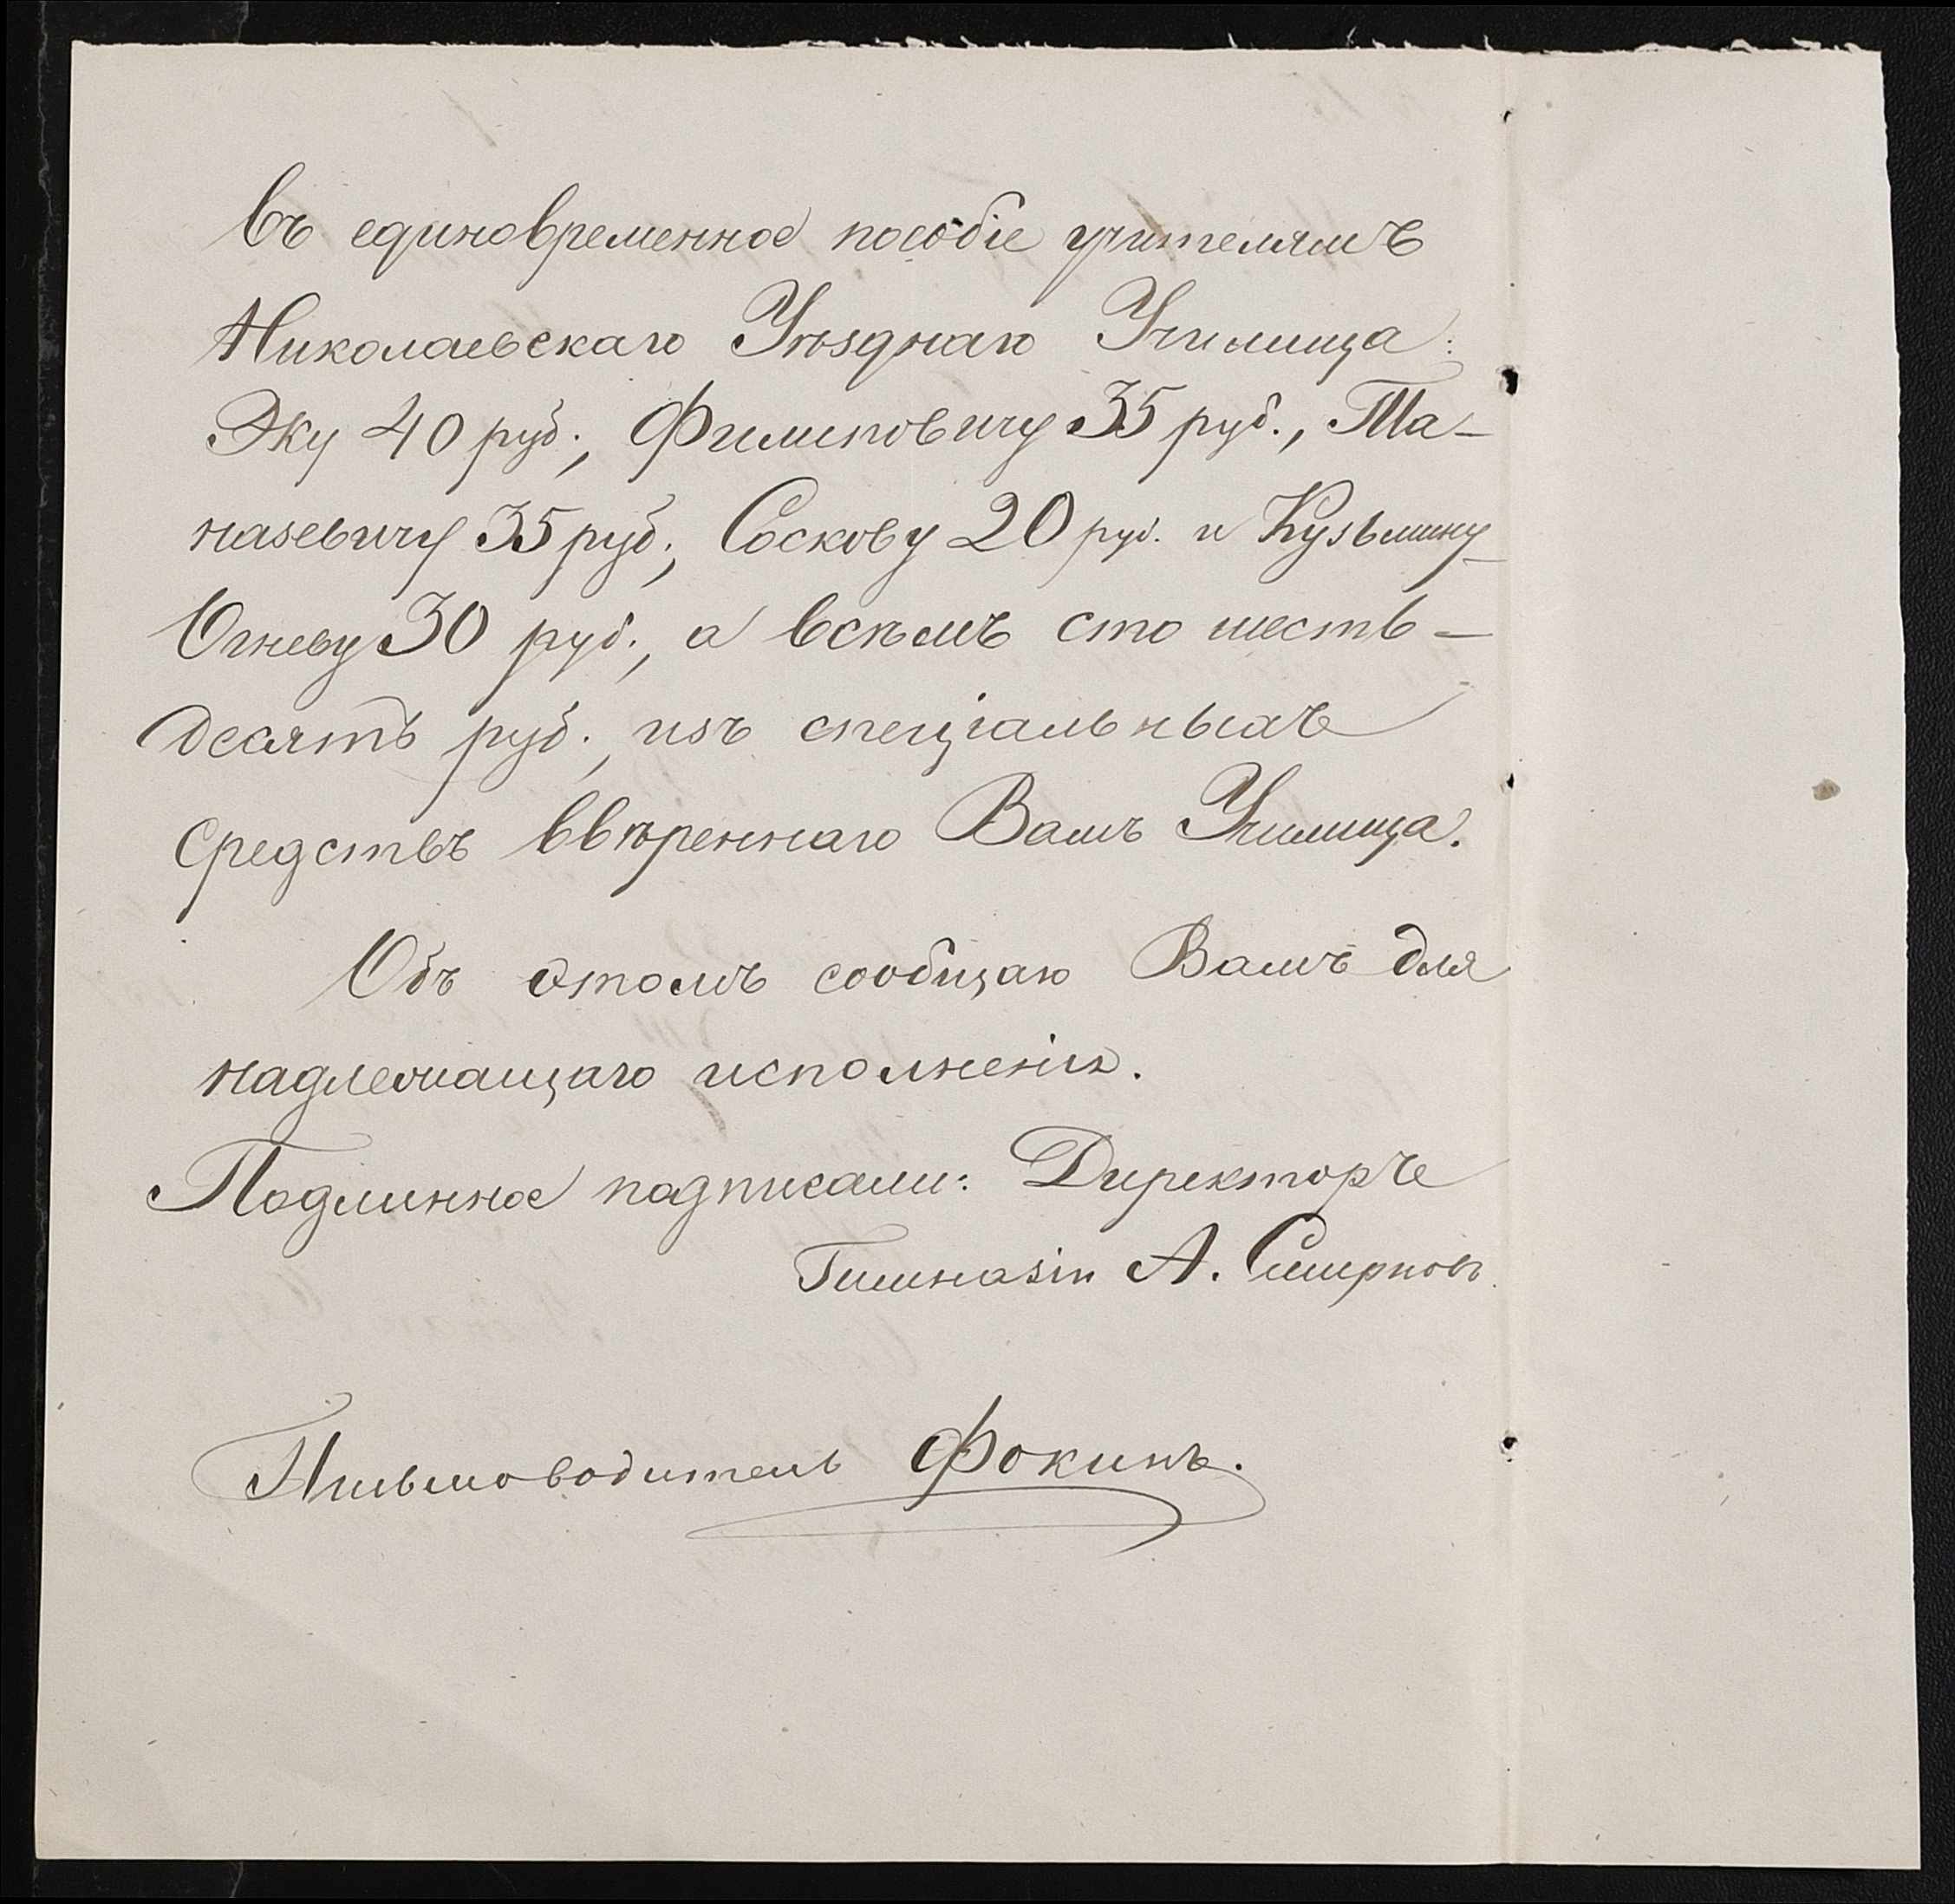 въ единовременное пособіе учителямъ
Николаевскаго Уѣзднаго Училища:
Эку 40 руб., Филиповичу 35 руб., Та-
назевичу 35 руб., Соскову 20 руб. и Кузьмину-
Огневу 30 руб., а всѣмъ сто шесть-
десятъ руб., изъ спеціальныхъ
средствъ ввѣреннаго Вамъ Училища.
Объ этомъ сообщаю Вамъ для
надлежащаго исполненія.
Подлинное подписали: Директоръ
Гимназіи А. Смирновъ
Письмоводитель Фокинъ.